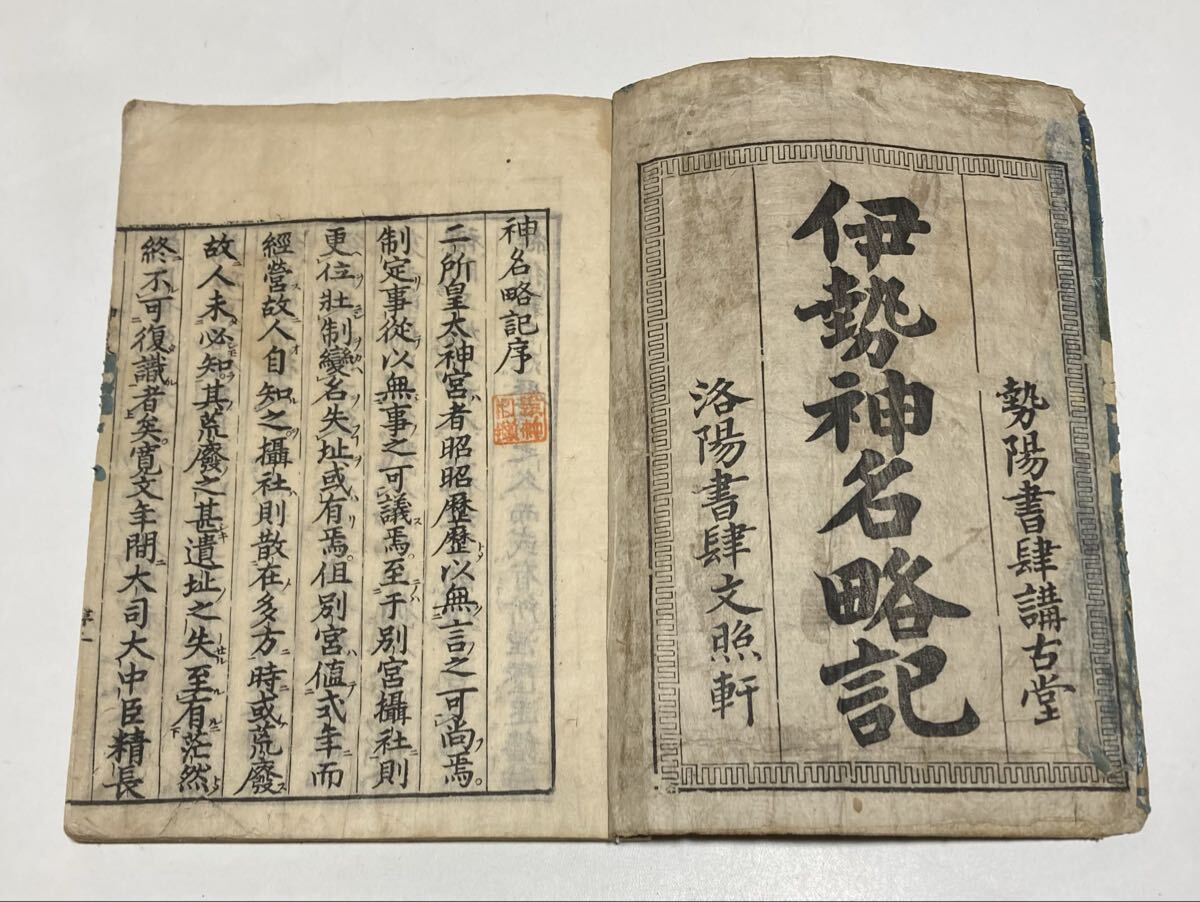 勢陽書肆講古堂
伊勢神名略記
洛陽書肆文照軒
神名略記序
二所皇太神宮者昭昭歴歴以無言之可尚焉
制定事從以無事之可議焉至于別宮攝社則
更位壯制變名失址或有焉但別宮値式年而
經營故人自知之攝社則散在多方時或荒廢
故人未必知其荒廢之甚遺址之失至有茫然
終不可復識者矣寛文年間大司大中臣精長
序一